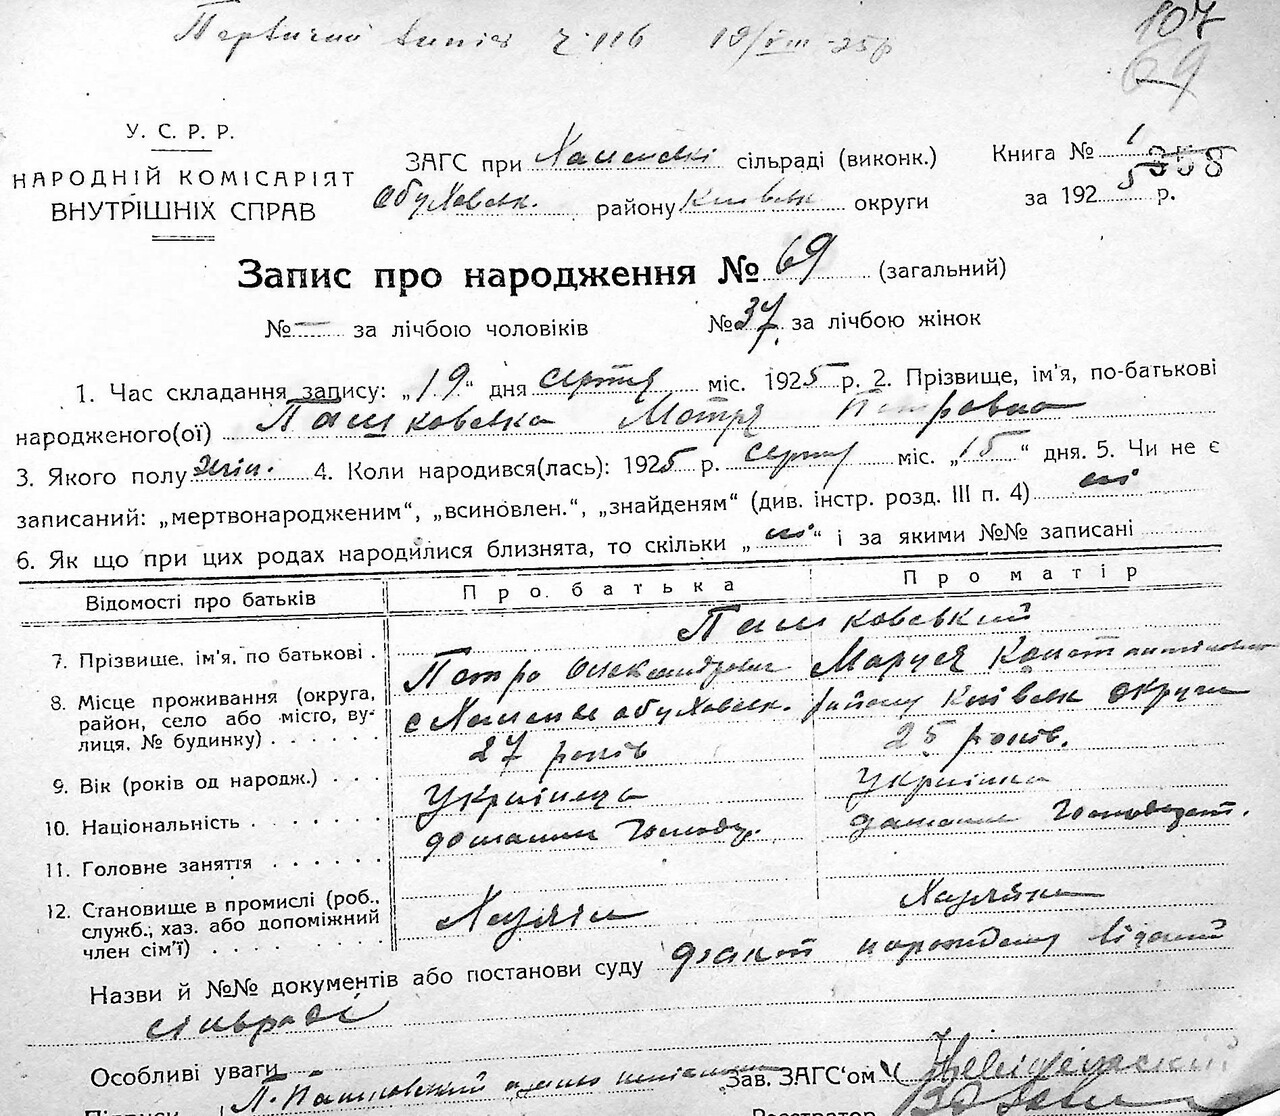 Первичний випис ч 116 19/VIII-25р
107
69
У. С. Р. Р.
НАРОДНІЙ КОМІСАРІЯТ
ВНУТРІШНІХ СПРАВ
ЗАГС при сільраді (виконк.)
Обуховськ. району Київськ округи
Книга № 1
358
за 1925 р.
Запис про народження № 69 (загальний)
№ — за лічбою чоловіків № 37 за лічбою жінок
1. Час складання запису: „19“ дня серпня міс. 1925 р. 2. Прізвище, ім'я, по-батькові
народженого(ої) Пашковська Мотря Петровна
3. Якого полу жін. 4. Коли народився(лась): 1925 р. серпня міс. „15“ дня. 5. Чи не є
записаний: „мертвонародженим“, „всиновлен.“, „знайденям“ (див. інстр. розд. III п. 4) ні
6. Як що при цих родах народилися близнята, то скільки „ні“ і за якими №№ записані
Відомості про батьків Про батька Про матір
Пашковський
7. Прізвише, ім'я, по батькові . Петро Олександрович Маруся Константиновна
8. Місце проживання (округа, район, село або місто, вулиця, № будинку) . . . . . . с Обуховськ. району Київськ округи
9. Вік (років од народж.) . . . 27 років 25 років.
10. Національність . . . . . . . Українець Українка
11. Головне заняття . . . . . . домашнє господ. домашнє господарст.
12. Становище в промислі (роб., служб., хаз. або допоміжний член сім'ї) . . . . . . . . Хазяїн Хазяйка
Назви й №№ документів або постанови суду факт народження відомий
сільраді
Особливі уваги
Зав. ЗАГС'ом
Підписи П. Пашковський
Реєстратор